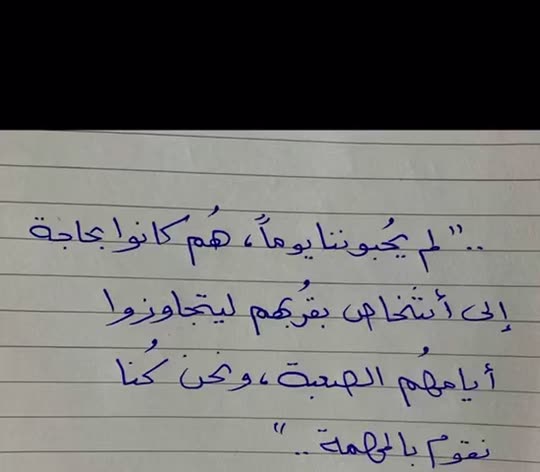 .." لم يحُبوننا يوماً، هُم كانوا بحاجة
إلى أشخاص بقربُهم ليتجاوزوا
أيامهُم الصعبة، ونحن كُنا
نقوم بالمهمة .. "